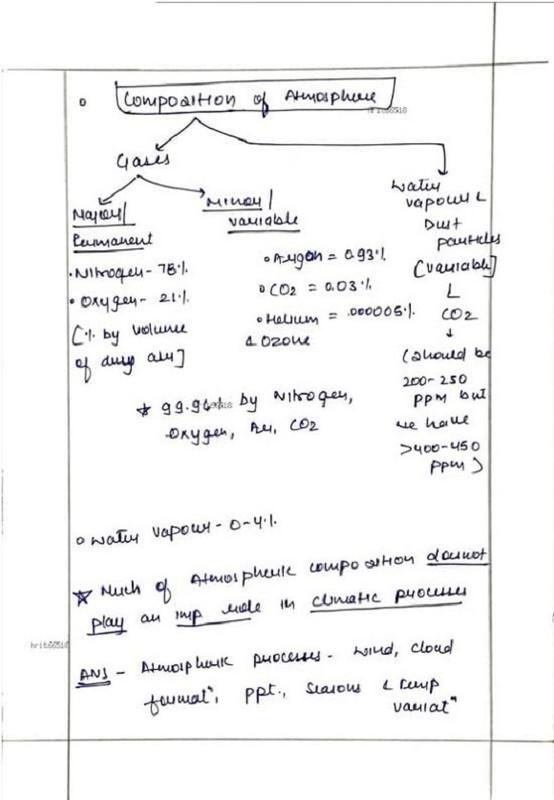 Composition of Atmosphere
hrit66518
Gases
Major/
Permanent
• Nitrogen - 78%
• Oxygen - 21%
[% by volume
of dry air]
Minor/
variable
• Argon = 0.93%
• CO2 = 0.03%
• Helium = .000005%
& Ozone
Water
vapour &
Dust
particles
[variable]
&
CO2
(should be
200-250
ppm but
we have
>400-450
ppm)
* 99.96% by Nitrogen,
Oxygen, Ar, CO2
• Water vapour - 0-4%
* Much of Atmospheric composition doesnot
play an imp role in climatic processes
hrit66518
ANS - Atmospheric processes - wind, cloud
format", ppt., seasons & temp
variat"